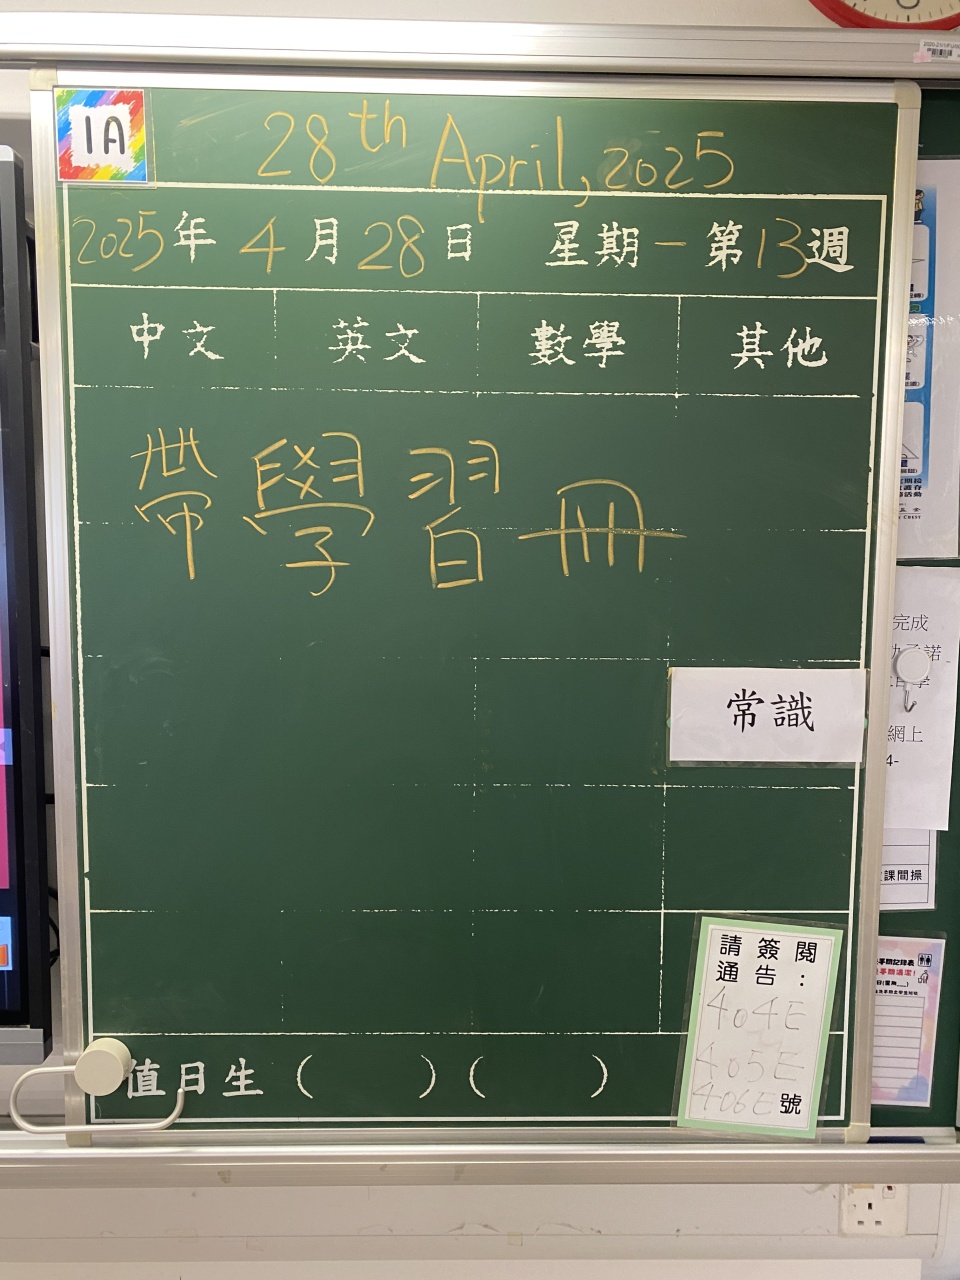 1A
28th April, 2025
2025年 4月28日 星期一 第13週
中文 英文 數學 其他
帶學習冊
常識
請簽閱
通告：
404E
405E
406E號
值日生（ ）（ ）
完成
承諾
網上
4-
課間操